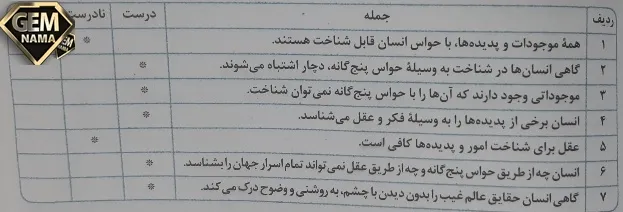 GEM
NAMA
ردیف جمله درست نادرست
۱ همهٔ موجودات و پدیده‌ها، با حواس انسان قابل شناخت هستند. *
۲ گاهی انسان‌ها در شناخت به وسیلهٔ حواس پنج‌گانه، دچار اشتباه می‌شوند. *
۳ موجوداتی وجود دارند که آن‌ها را با حواس پنج‌گانه نمی‌توان شناخت. *
۴ انسان برخی از پدیده‌ها را به وسیلهٔ فکر و عقل می‌شناسد. *
۵ عقل برای شناخت امور و پدیده‌ها کافی است. *
۶ انسان چه از طریق حواس پنج‌گانه و چه از طریق عقل نمی‌تواند تمام اسرار جهان را بشناسد. *
۷ گاهی انسان حقایق عالم غیب را بدون دیدن با چشم، به روشنی و وضوح درک می‌کند. *